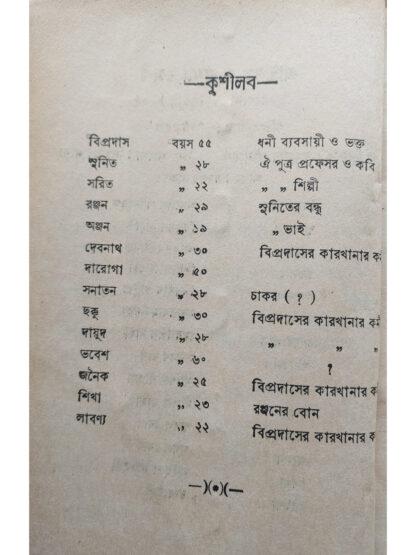 —কুশীলব—
বিপ্রদাস বয়স ৫৫ ধনী ব্যবসায়ী ও ভক্ত
সুনিত „ ২৮ ঐ পুত্র প্রফেসর ও কবি
সরিত „ ২২ „ „ শিল্পী
রঞ্জন „ ২৯ সুনিতের বন্ধু
অঞ্জন „ ১৯ „ ভাই
দেবনাথ „ ৩০ বিপ্রদাসের কারখানার
দারোগা „ ৫০
সনাতন „ ২৮ চাকর ( ? )
ছক্কু „ ৩০ বিপ্রদাসের কারখানার
দায়ুদ „ ২৮ „ „
ভবেশ „ ৬০ ?
জনৈক „ ২৫ বিপ্রদাসের কারখানার ক
শিখা „ ২৩ রঞ্জনের বোন
লাবণ্য „ ২২ বিপ্রদাসের কারখানার ক
—)(•)(—